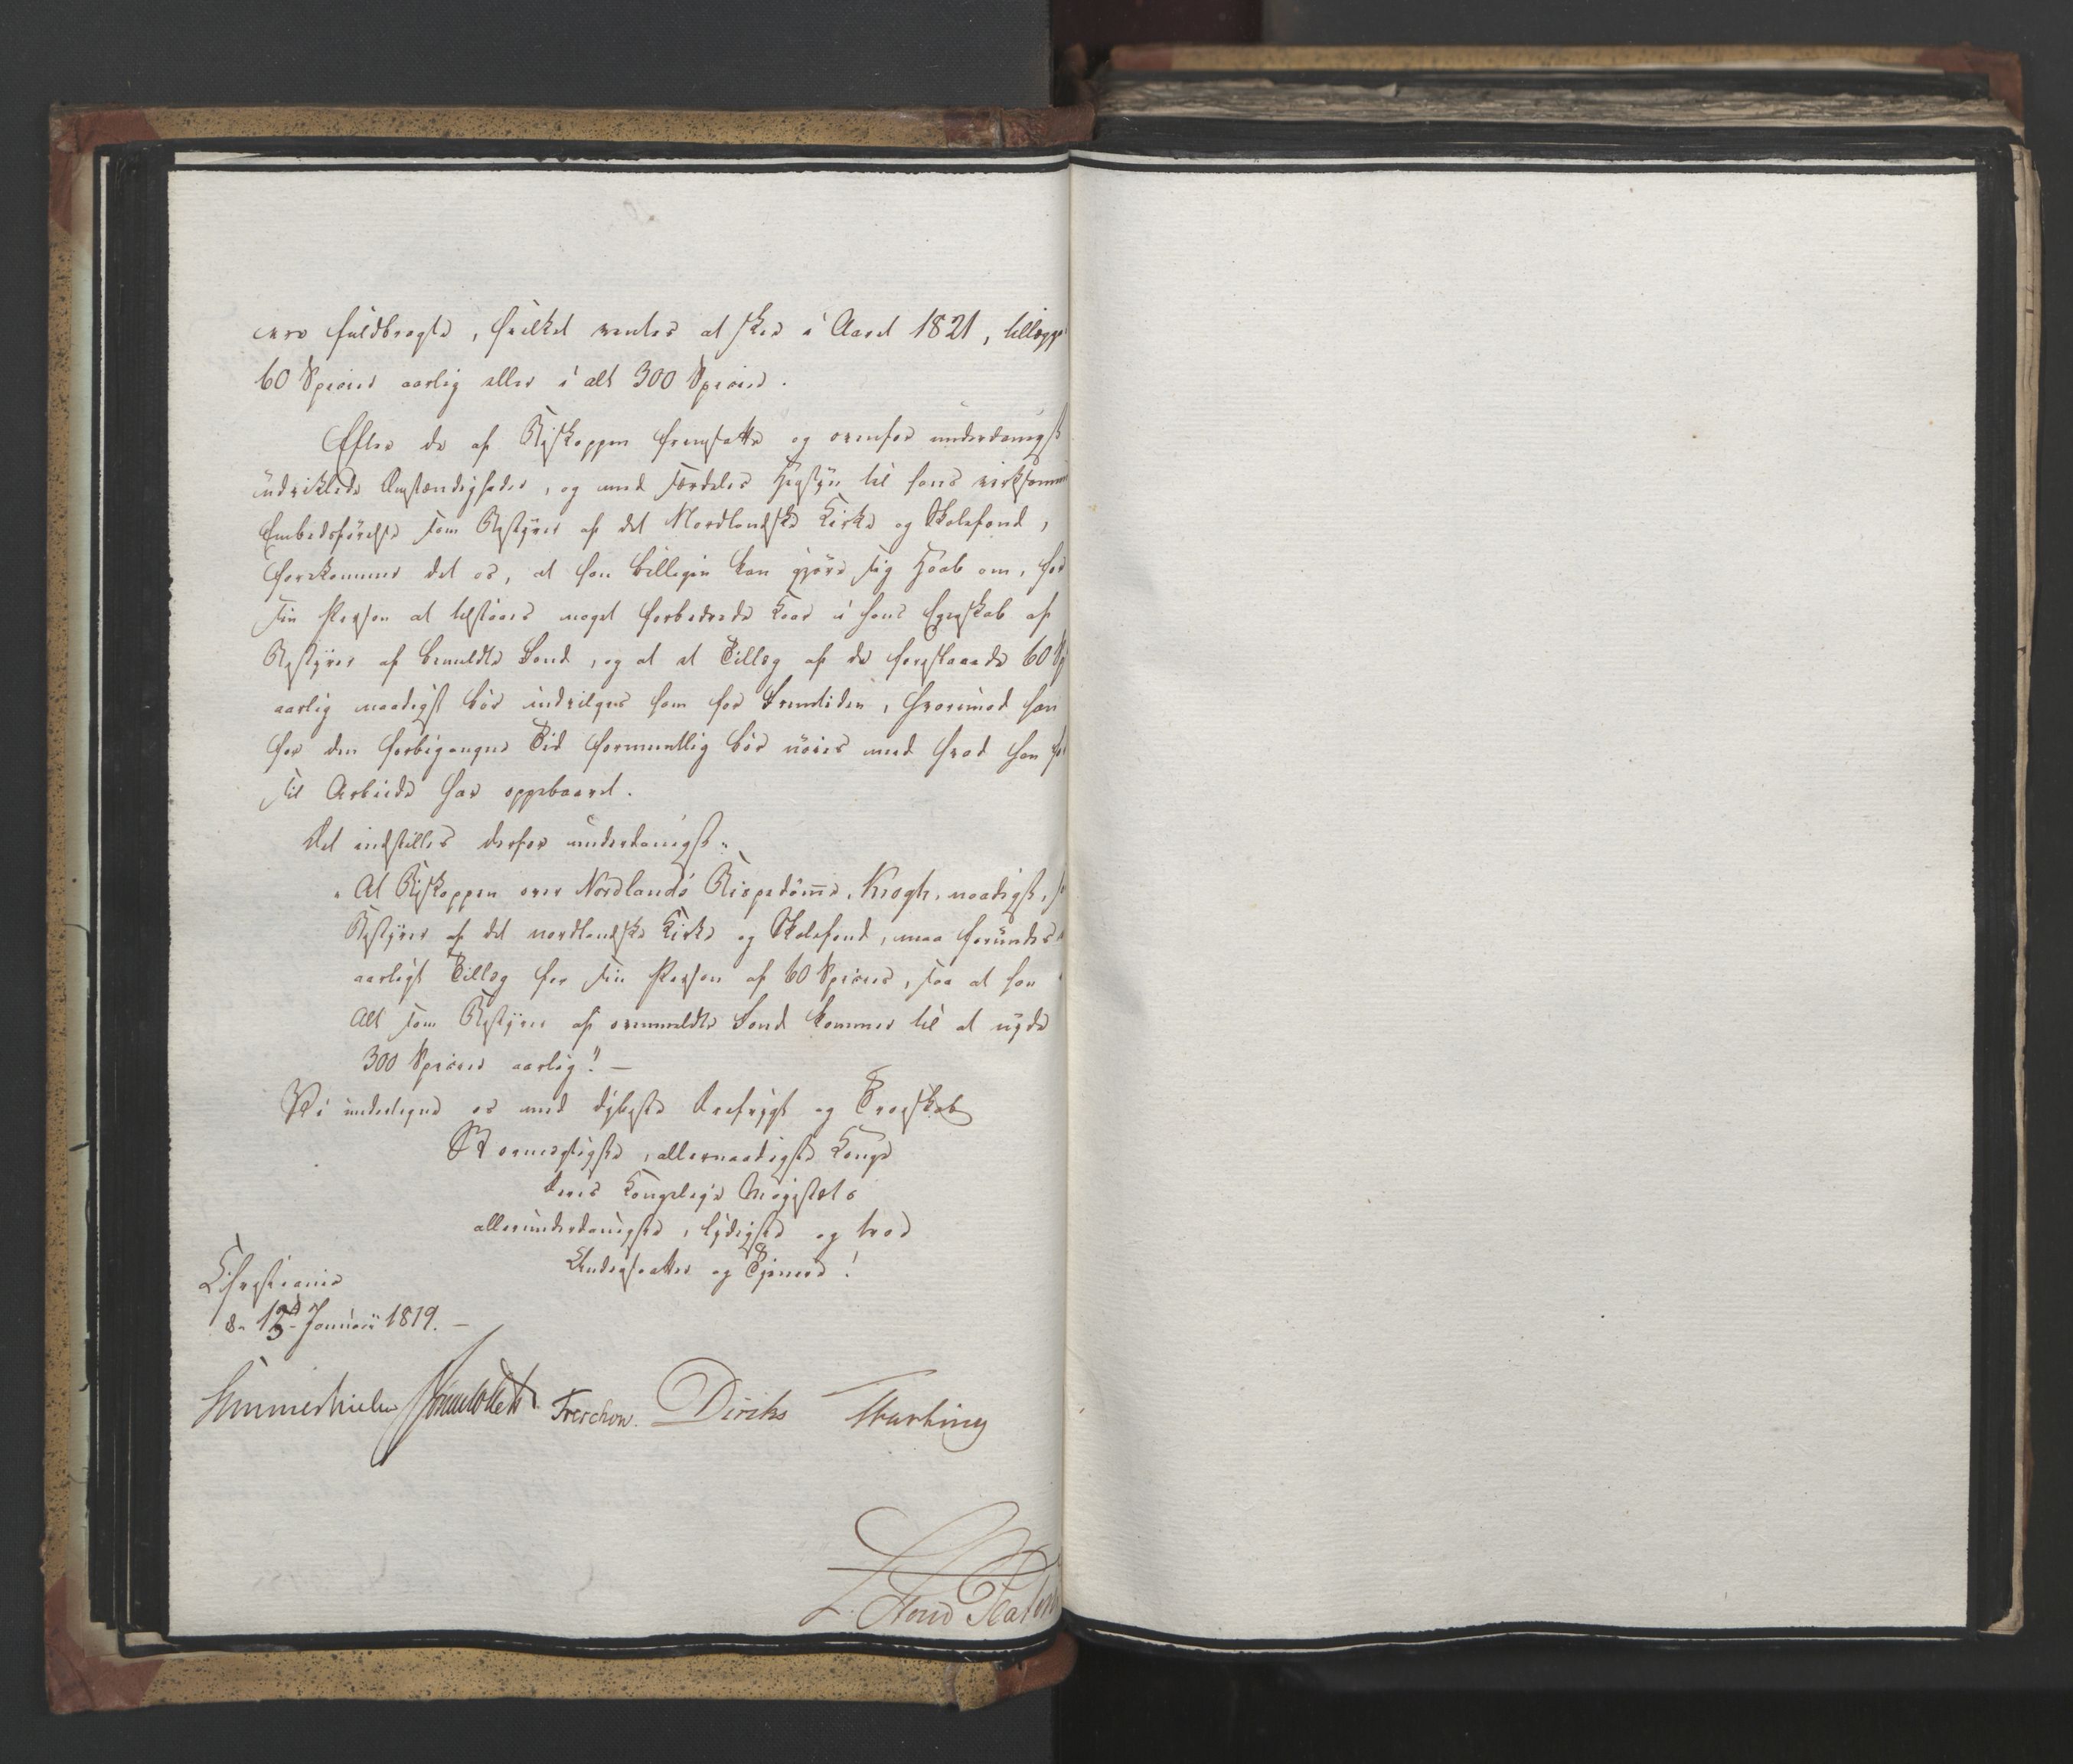 være fuldbragte, hvilket ventes at skee i Aaret 1821, tillægges
60 Species aarlig eller i alt 300 Species.
Efter de af Biskoppen fremsatte og ovenfor underdanigst
udviklede Omstændigheder, og med særdeles Hensyn til hans virksomme
Embedsførelse som Bestyrer af det Nordlandske Kirke og Skolefond,
forekommer det os, at han billigen kan gjøre sig Haab om, for
sin Person at tilstaaes noget forbedrede Kaar i hans Egenskab af
Bestyrer af bemeldte Fond, og at et Tillæg af de foreslaaede 60 Sp
aarlig naadigst bør indvilges ham for Fremtiden, hvorimod han
for den forbigangne Tid formeentlig bør nøies med hvad han for
sit Arbeide har oppebaaret.
Det indstilles derfor underdanigst:
"At Biskoppen over Nordlands Bispedømme, Krogh, naadigst, som
Bestyrer af det nordlandske Kirke og Skolefond, maa forundes et
aarligt Tillæg for sin Person af 60 Species, saa at han i
Alt som Bestyrer af ovenmeldte Fond kommer til at nyde
300 Species aarlig". —
Vi undertegne os med dybeste Ærefrygt og Troeskab
Stormægtigste, allernaadigste Konge
Deres Kongelige Majestæts
allerunderdanigste, lydigste og troe
Undersaatter og Tjenere!
Christiania
d. 13d Januarii 1819. —
Sommerhielm Treschow. Diriks Motzfeldt